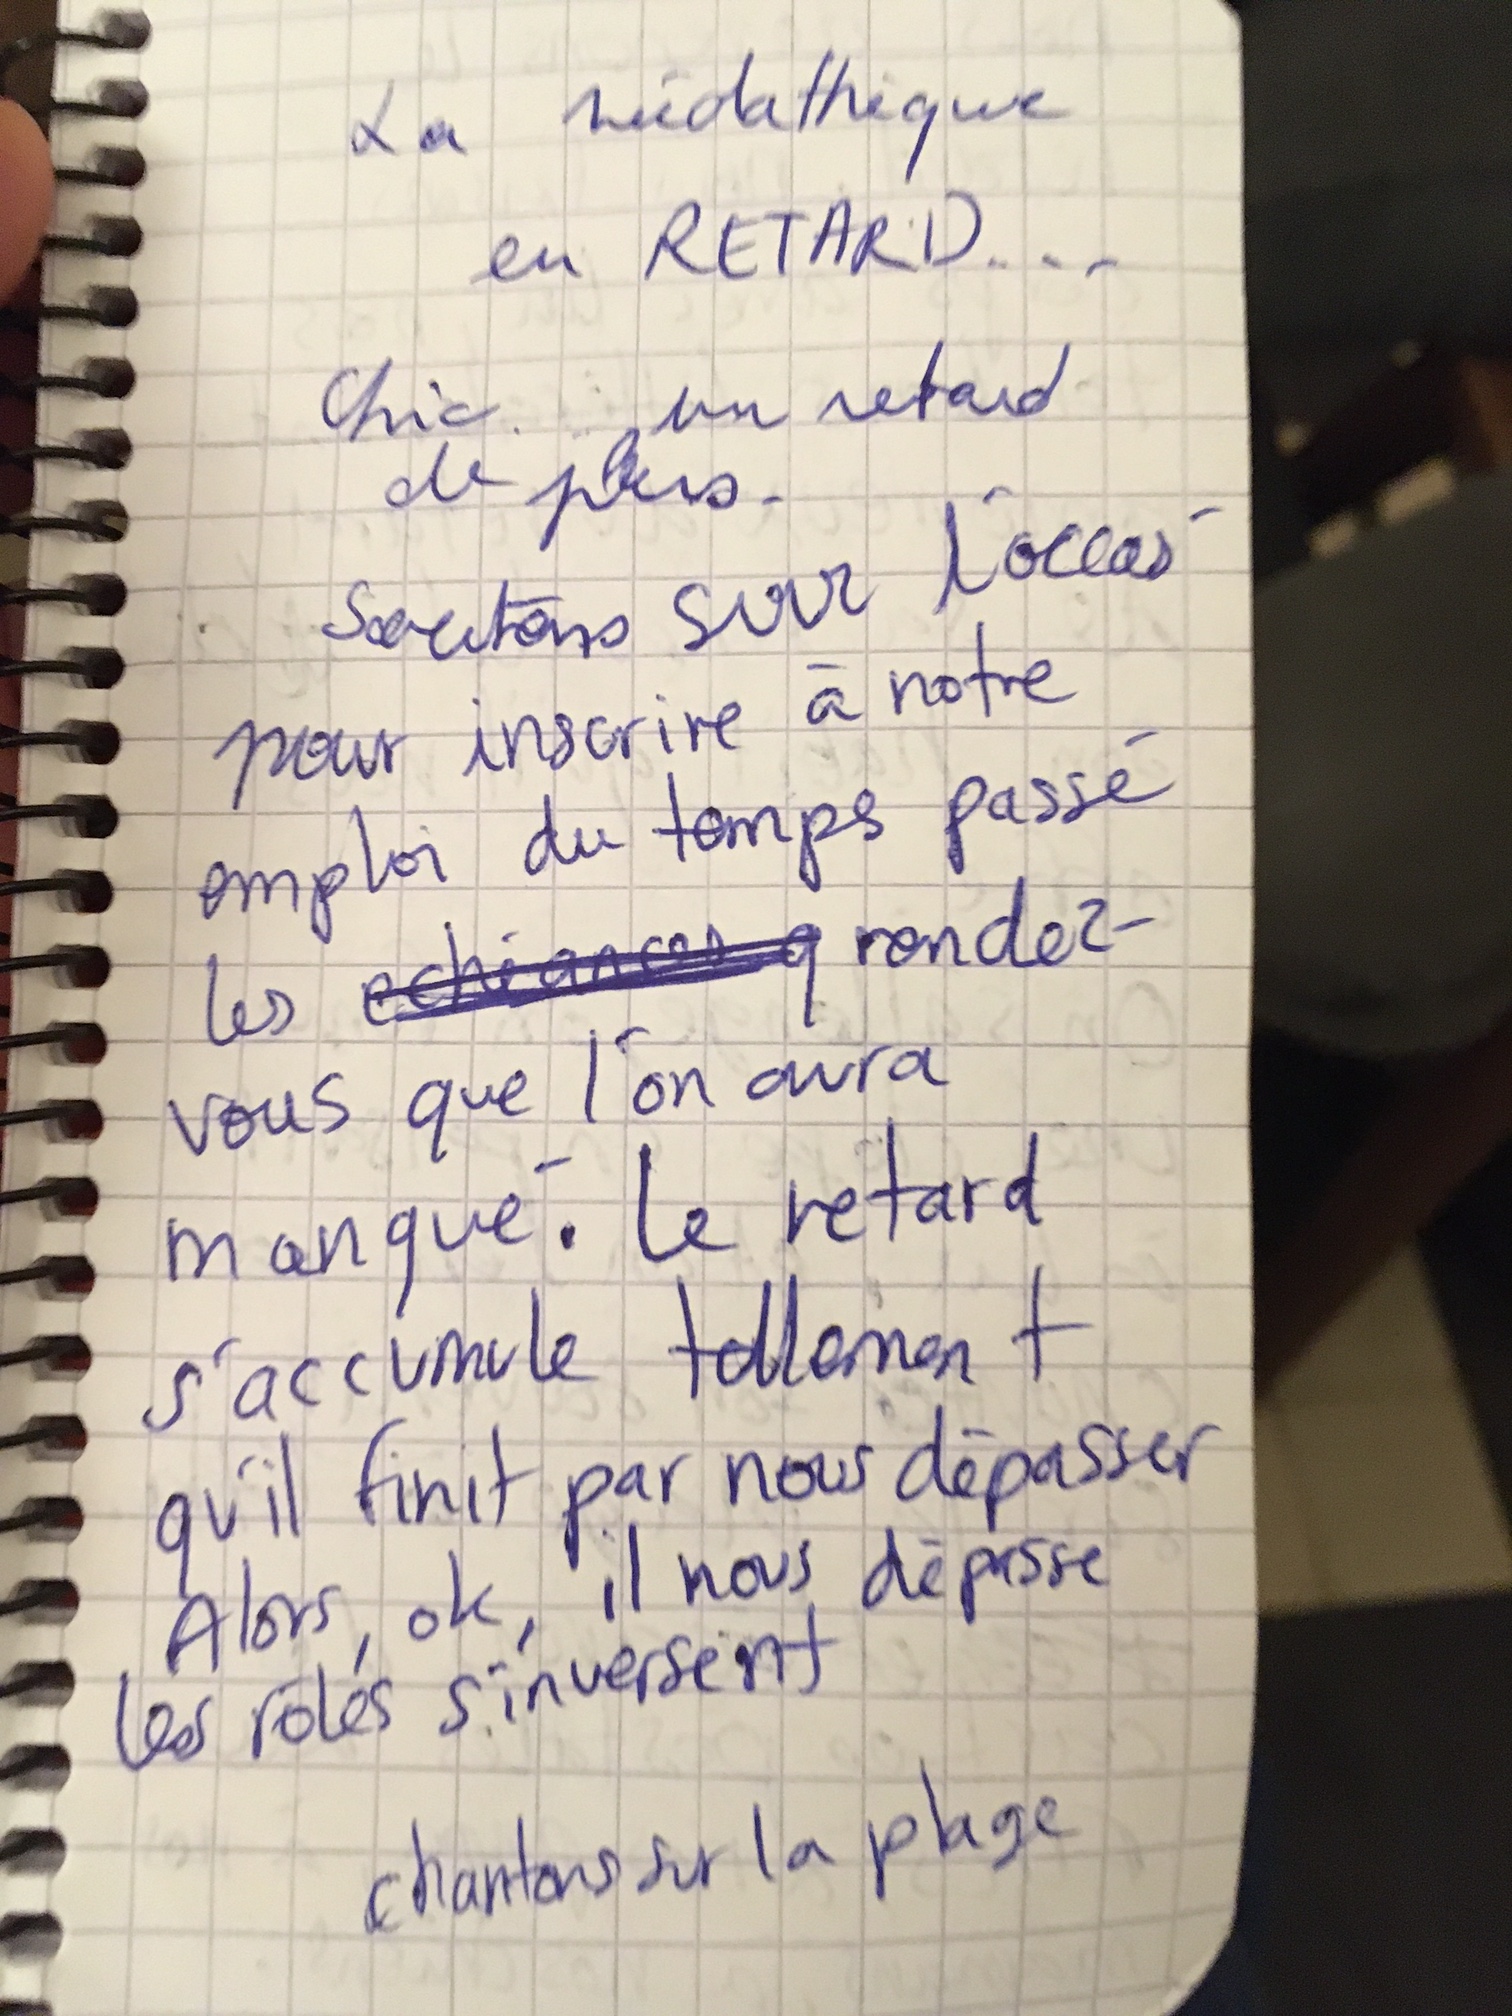 La médathèque
en RETARD....
Chic... un retard
de plus.
Sautons sur l'occas'
pour inscrire à notre
emploi du temps passé
les echéances q rendez-
vous que l'on aura
manqué. Le retard
s'accumule tellement
qu'il finit par nous dépasser
Alors, ok, il nous dépasse
les rôles s'inversent
chantons sur la plage